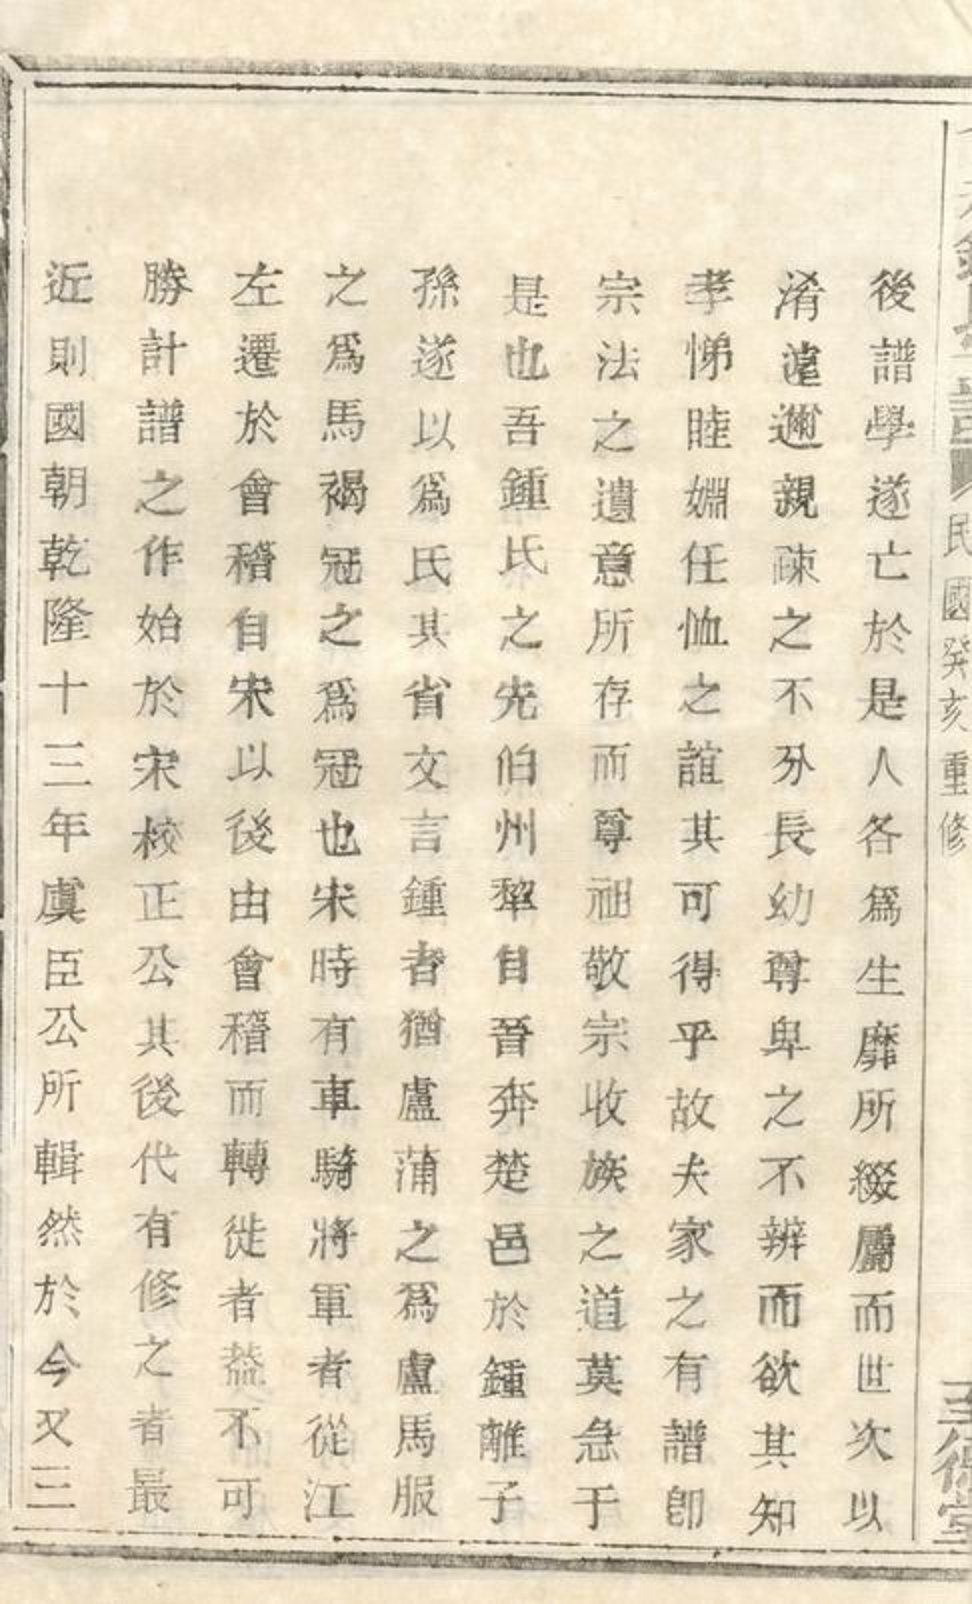 民國癸亥重修
後譜學遂亡於是人各爲生靡所綴屬而世次以
淆遠邇親疎之不分長幼尊卑之不辨而欲其知
孝悌睦婣任恤之誼其可得乎故夫家之有譜卽
宗法之遺意所存而尊祖敬宗收族之道莫急于
是也吾鍾氏之先伯州犂自晉奔楚邑於鍾離子
孫遂以爲氏其省文言鍾者猶盧蒲之爲盧馬服
之爲馬褐冠之爲冠也宋時有車騎將軍者從江
左遷於會稽自宋以後由會稽而轉徙者葢不可
勝計譜之作始於宋校正公其後代有修之者最
近則國朝乾隆十三年虞臣公所輯然於今又三